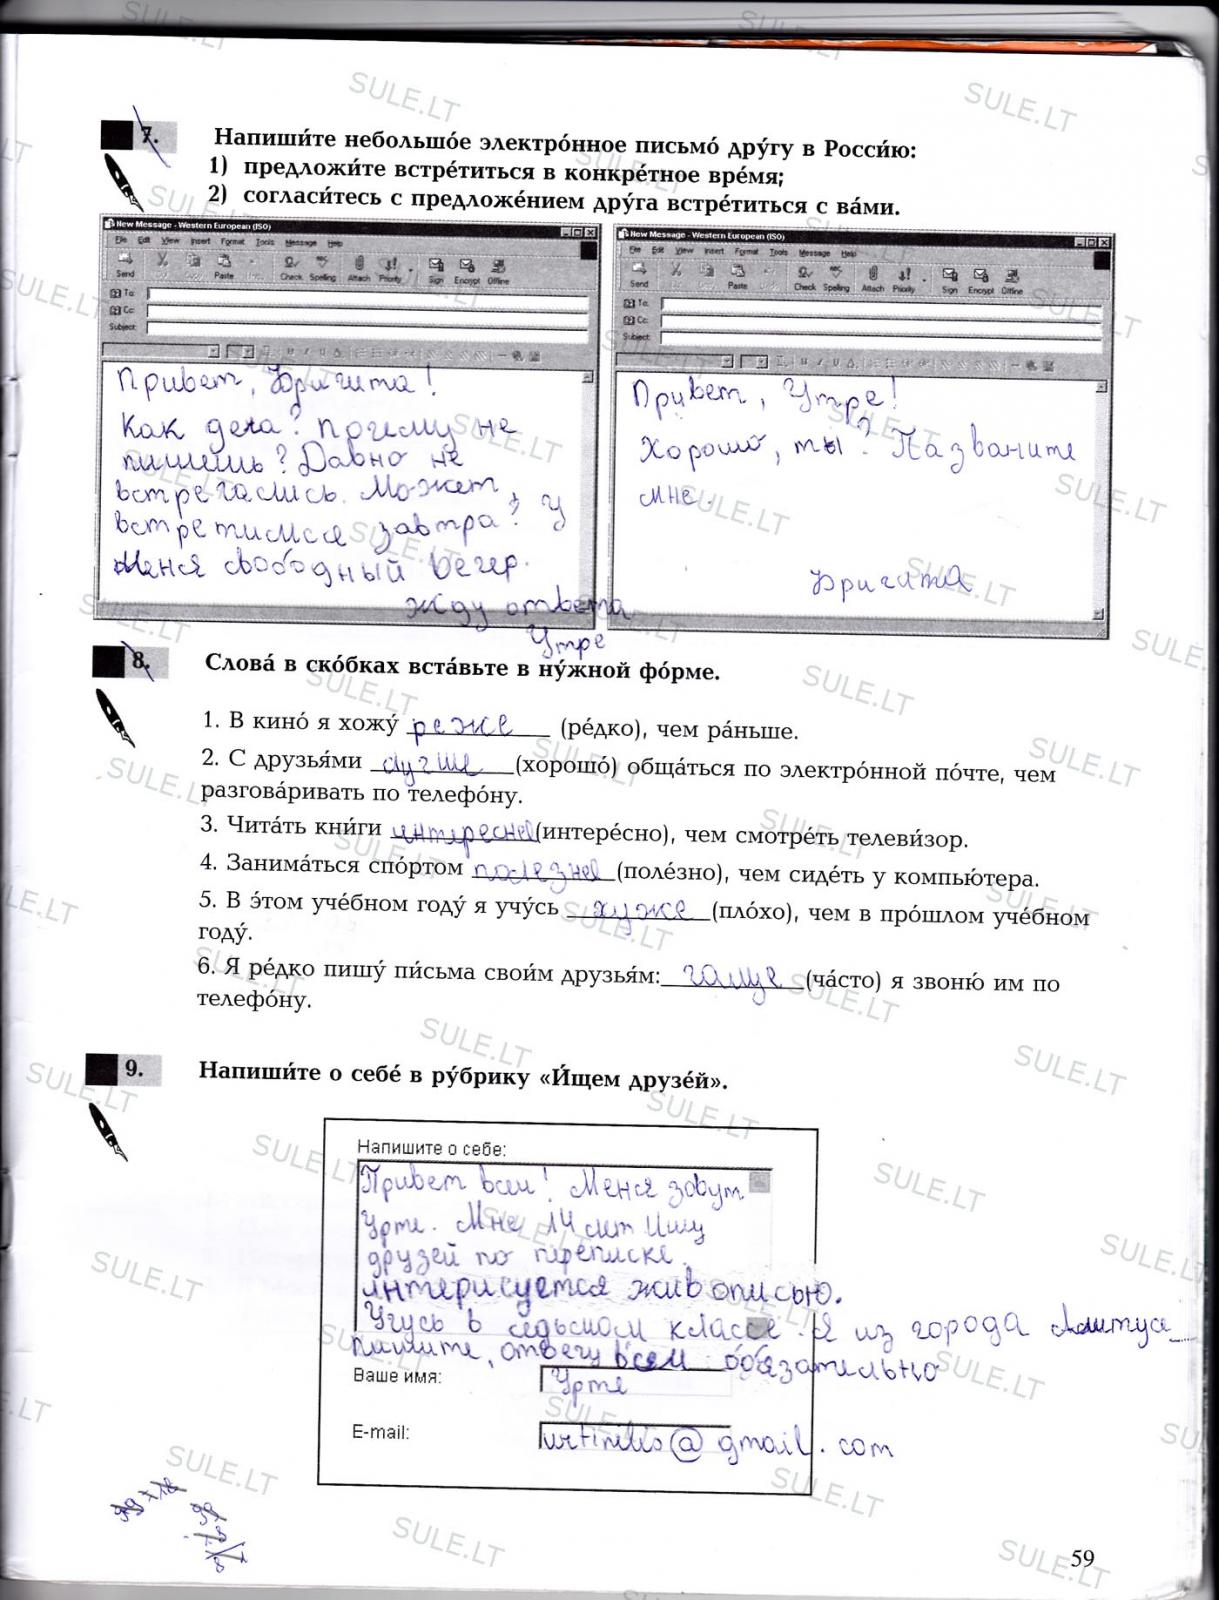 7. Напиши́те небольшо́е электро́нное письмо́ дру́гу в Росси́ю:
1) предложи́те встре́титься в конкре́тное вре́мя;
2) согласи́тесь с предложе́нием дру́га встре́титься с ва́ми.
New Message - Western European (ISO)
File Edit View Insert Format Tools Message Help
Send Cut Copy Paste Undo Check Spelling Attach Priority Sign Encrypt Offline
To:
Cc:
Subject:
Привет, Бригита!
Как дела? Почему не
пишешь? Давно не
встречались. Может,
встретимся завтра? У
меня свободный вечер.
Жду ответа
Утре
New Message - Western European (ISO)
File Edit View Insert Format Tools Message Help
Paste Check Spelling Attach Priority Sign Encrypt Offline
To:
Cc:
Subject:
Привет, Утре!
Хорошо, ты? Пазваните
мне.
Бригита
8. Слова́ в ско́бках вста́вьте в ну́жной фо́рме.
1. В кино́ я хожу́ реже (ре́дко), чем ра́ньше.
2. С друзья́ми лучше (хорошо́) обща́ться по электро́нной по́чте, чем
разгова́ривать по телефо́ну.
3. Чита́ть кни́ги интересней (интере́сно), чем смотре́ть телеви́зор.
4. Занима́ться спо́ртом полезней (поле́зно), чем сиде́ть у компью́тера.
5. В э́том уче́бном году́ я учу́сь хуже (пло́хо), чем в про́шлом уче́бном
году́.
6. Я ре́дко пишу́ пи́сьма свои́м друзья́м: чаще (ча́сто) я звоню́ им по
телефо́ну.
9. Напиши́те о себе́ в ру́брику «И́щем друзе́й».
Напишите о себе:
Привет всем! Меня зовут
Урте. Мне 14 лет Ишу
друзей по переписке.
интерисуется живописью.
Учусь в седьмом классе. Я из города
пишите, отвечу всем обязательно
Ваше имя: Урте
E-mail: @gmail.com
59
SULE.LT